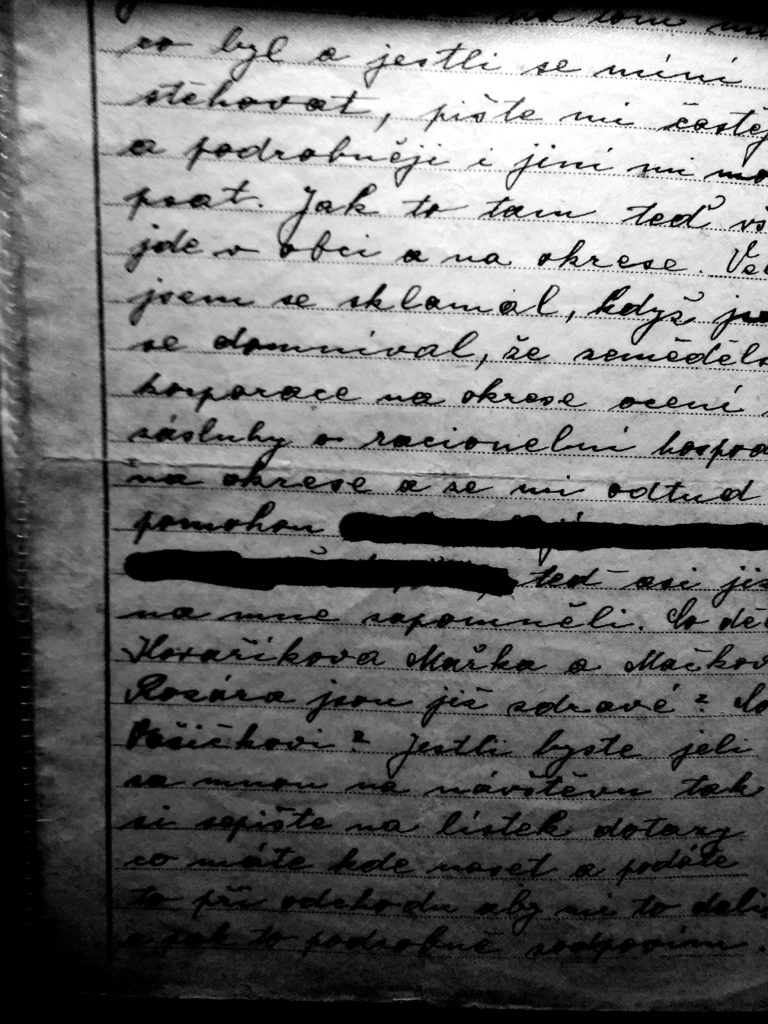 na tom
co byl a jestli se míní
stěhovat, pište mi častěj
a podrobněji i jiní mi mo
psat. Jak to tam teď vš
jde v obci a na okrese. Vel
jsem se sklamal, když js
se domníval, že zeměděls
korporace na okrese ocení
zásluhy o racionelní hospod
na okrese a se mi odtud
pomohou
teď asi již
na mne zapomněli. Co dě
Kovaříkova Mařka a Mačkov
Rozára jsou již zdravé? Co
Pašičkovi? Jestli byste jeli
za mnou na návštěvu tak
si sepište na lístek dotazy
co máte kde naset a podáte
to při odchodu aby mi to dali
a jak to podrobně zodpovím.